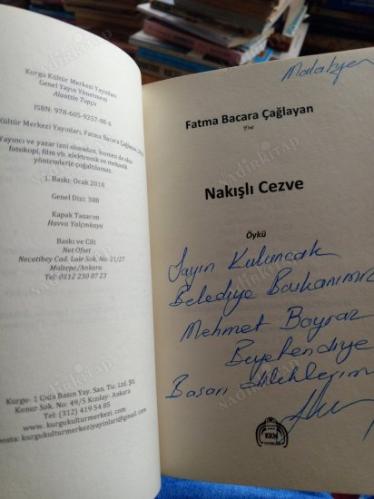 Kurgu Kültür Merkezi Yayınları
Genel Yayın Yönetmeni
Alaattin Topçu
ISBN: 978-605-9257-98-6
Kültür Merkezi Yayınları, Fatma Bacara Çağlayan,
Yayıncı ve yazar izni alınmadan, kısmen de olsa
fotokopi, film vb. elektronik ve mekanik
yöntemlerle çoğaltılamaz.
1. Baskı: Ocak 2018
Genel Dizi: 308
Kapak Tasarım
Havva Yalçınkaya
Baskı ve Cilt
Net Ofset
Necatibey Cad. Lale Sok. No: 21/27
Maltepe/Ankara
Tel: (0312 230 07 23
Kurgu- 1 Gıda Basın Yay. San. Tic. Ltd. Şti.
Konur Sok. No: 49/5 Kızılay- Ankara
Tel: (312) 419 54 85
posta: kurgukulturmerkeziyayinlari@gmail.com
www. kurgukulturmerkezi.com
Fatma Bacara Çağlayan
Nakışlı Cezve
Öykü
Sayın Kuluncak
Belediye Başkanımız
Mehmet Bayraz
Beyefendiye
Başarı dileklerim
KKM
NADİRKİTAP